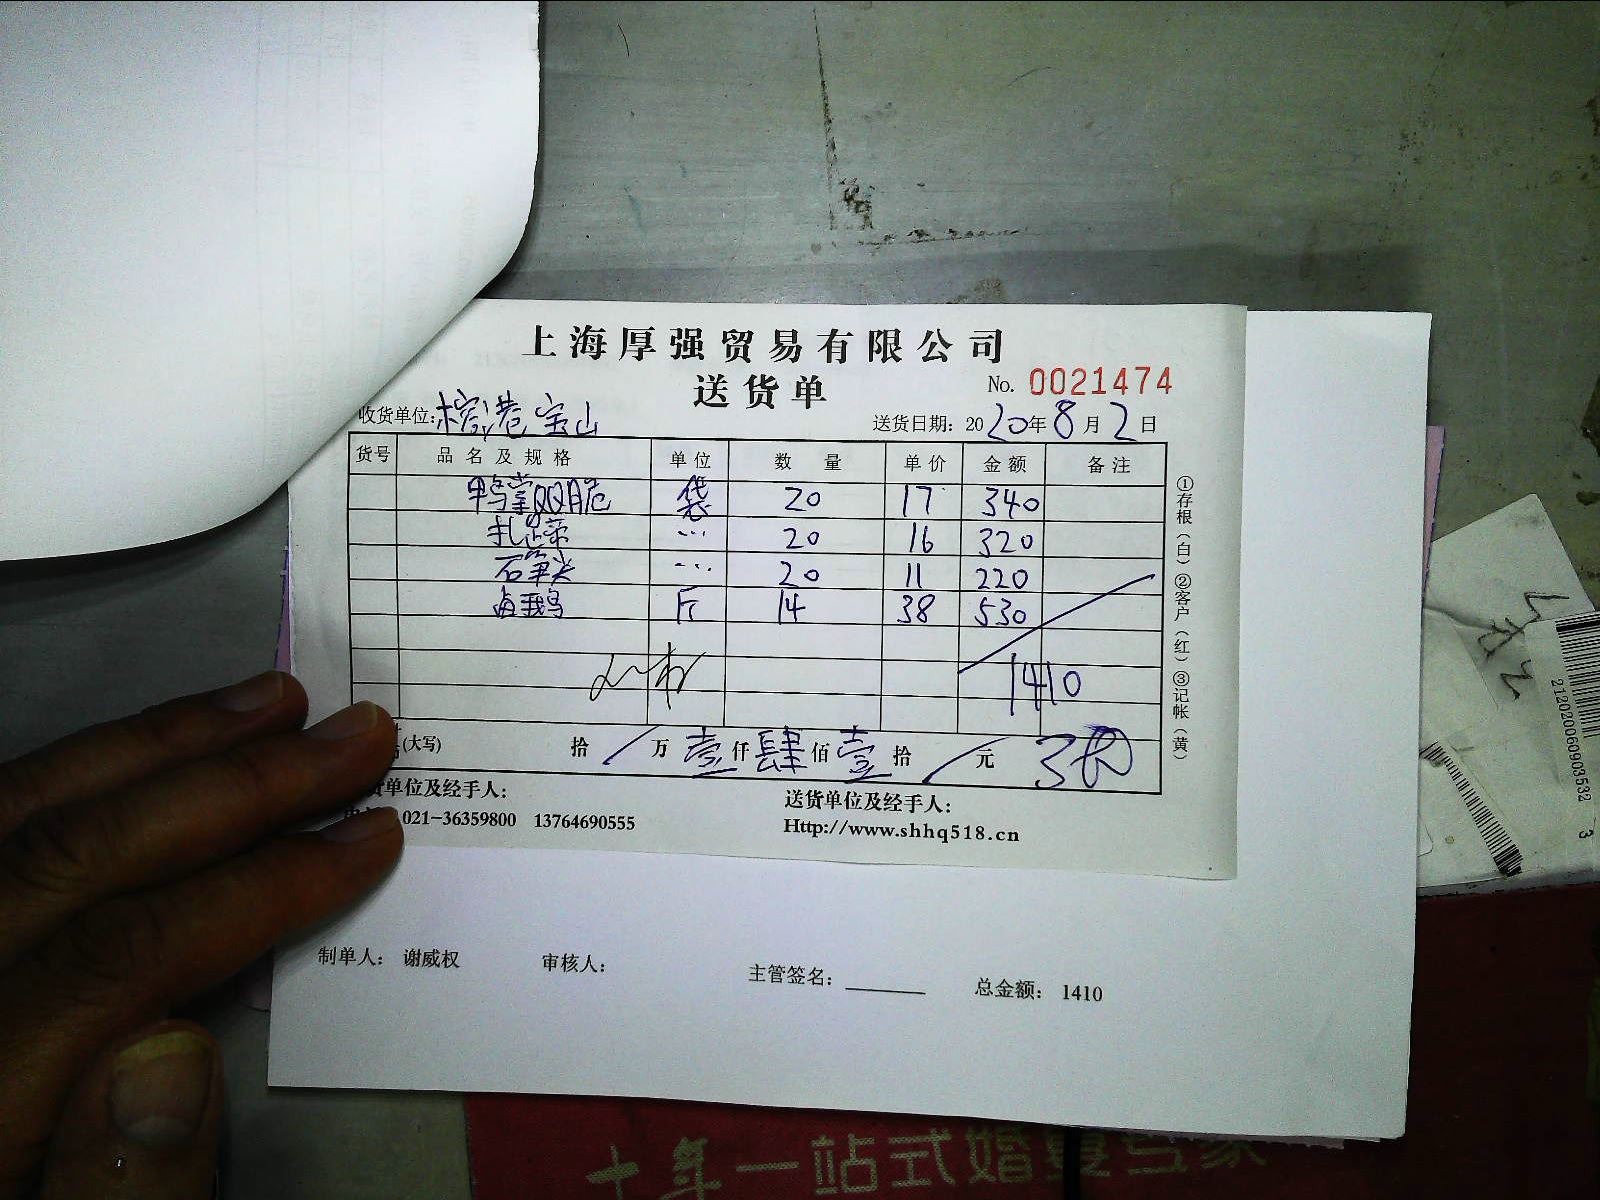 上海厚强贸易有限公司
送货单 No. 0021474
收货单位: 榕港宝山 送货日期: 2020年8月2日
货号 品名及规格 单位 数量 单价 金额 备注
鸭掌QQ脆 袋 20 17 340
扎 20 16 320
石笋尖 20 11 220
卤鹅 斤 14 38 530
1410
(大写) 拾 / 万 壹 仟 肆 佰 壹 拾 / 元
货单位及经手人: 送货单位及经手人:
021-36359800 13764690555 Http://www.shhq518.cn
①存根(白)②客户(红)③记帐(黄)
制单人: 谢威权 审核人: 主管签名: 总金额: 1410
212020060903532 3
十年一站式婚